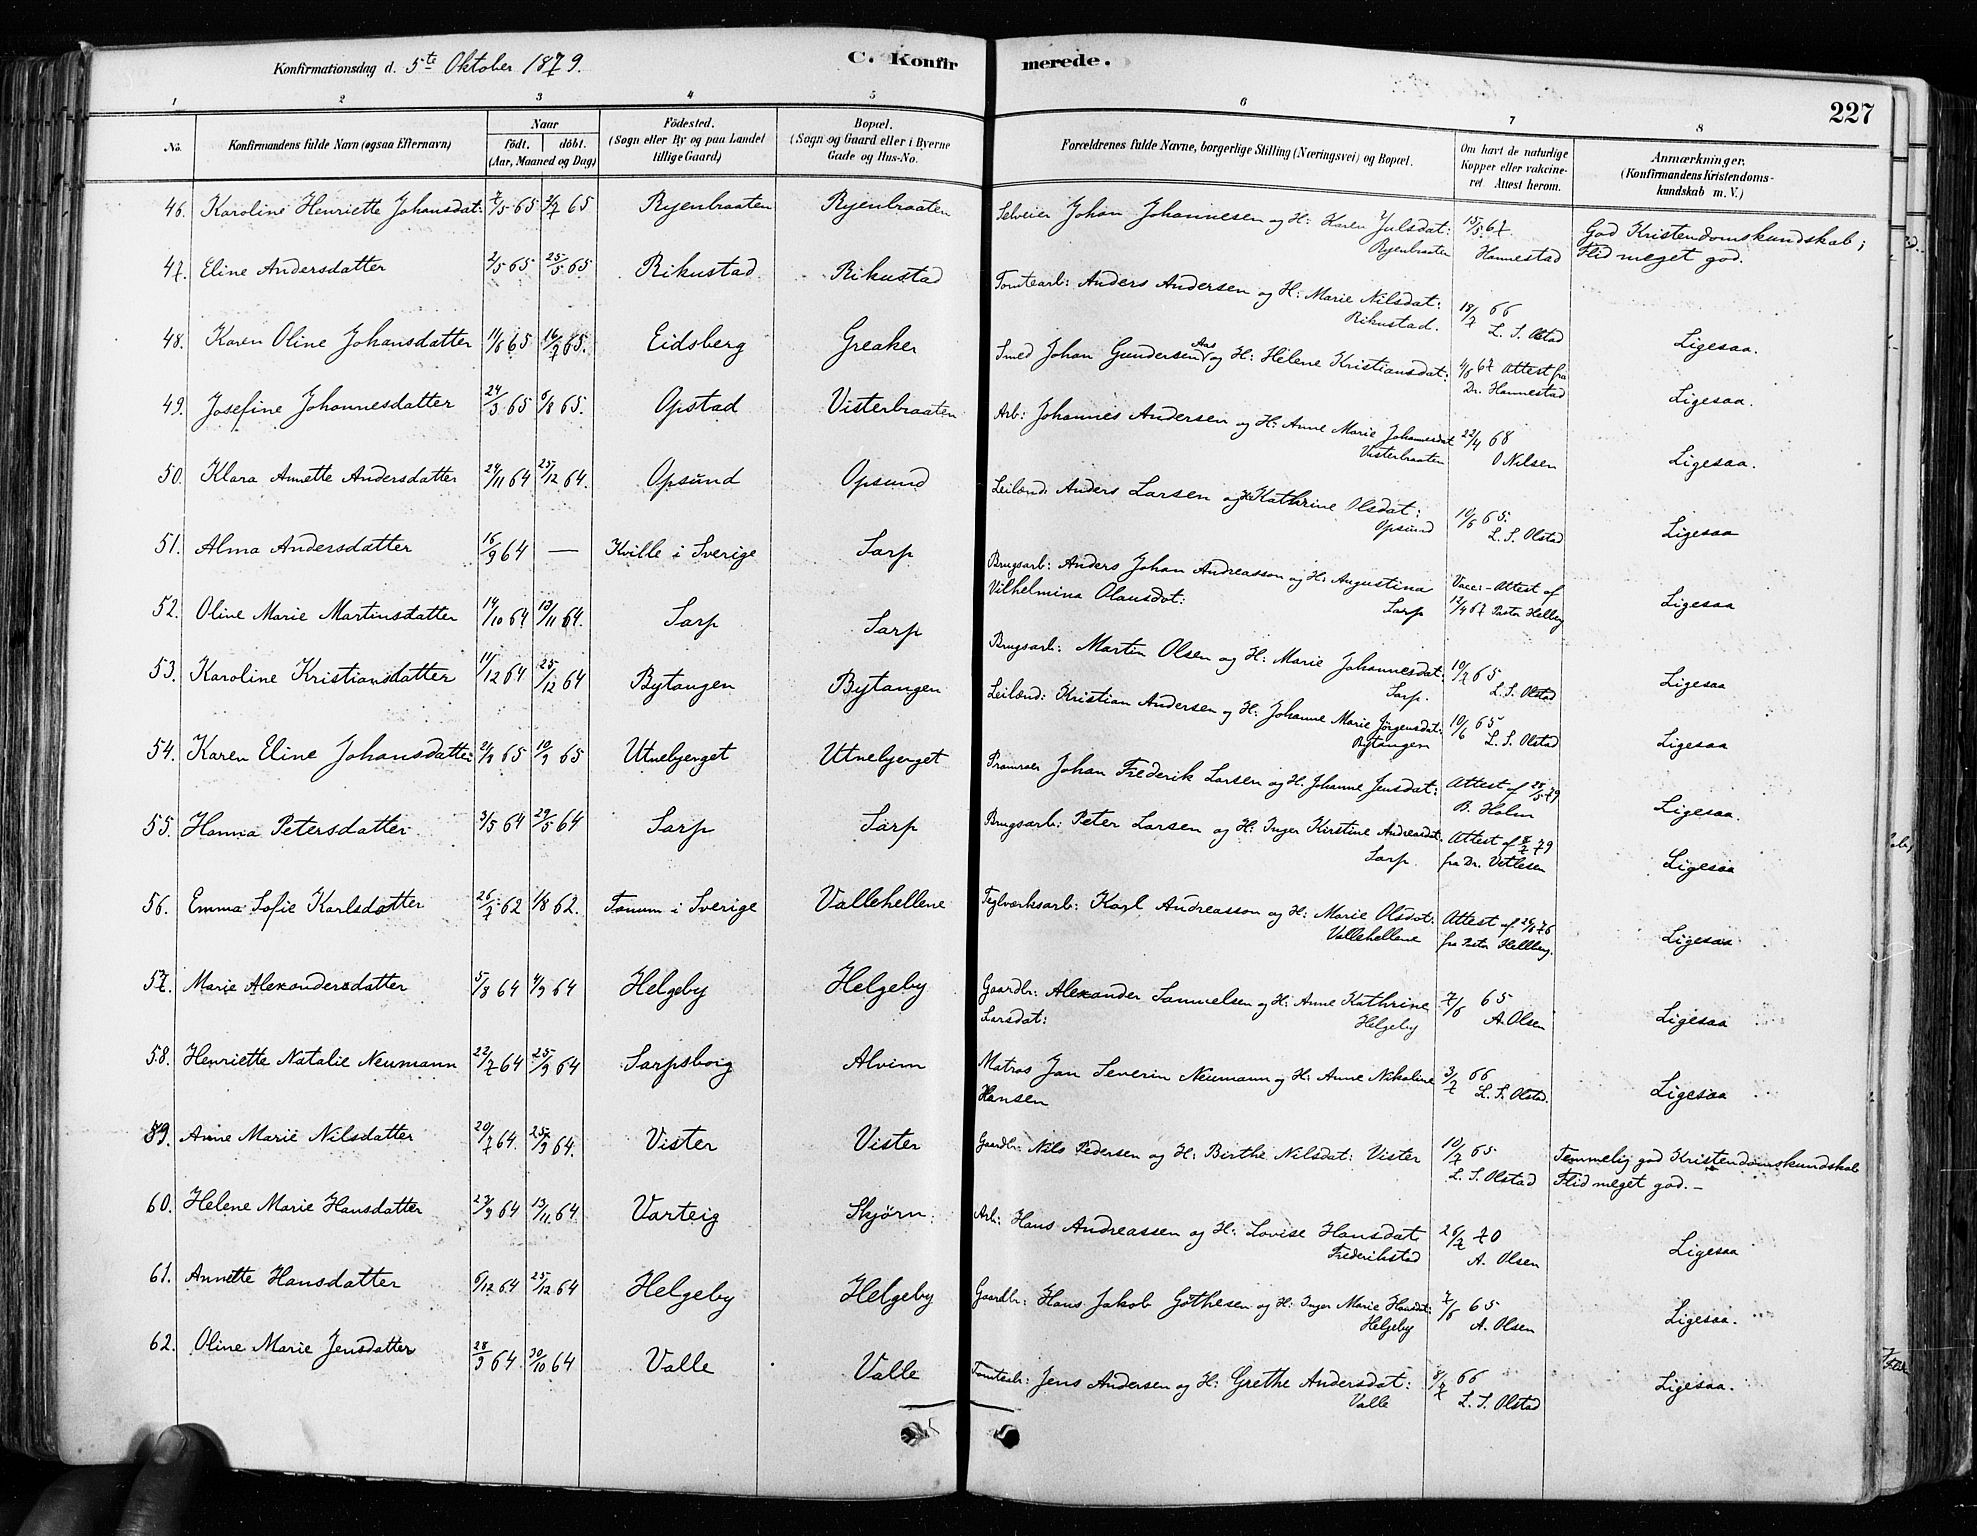 Konfirmationsdag d. 5te Oktober 1879. C. Konfirmerede. 227
1 2 3 4 5 6 7 8
No. Konfirmandens fulde Navn (ogsaa Efternavn) Naar født. døbt. (Aar, Maaned og Dag) Fødested. (Sogn eller By og paa Landet tillige Gaard) Bopæl. (Sogn og Gaard eller i Byerne Gade og Hus-No. Forældrenes fulde Navne, borgerlige Stilling (Næringsvei) og Bopæl. Om havt de naturlige Kopper eller vakcineret Attest herom. Anmærkninger. (Konfirmandens Kristendomskundskab m. V.)
46. Karoline Henriette Johansdat: 7/5 65 2/7 65 Ryenbraaten Ryenbraaten Selveier Johan Johannesen og H: Karen Julsdat: 15/5 67. God Kristendomskundskab;
Ryenbraaten Hannestad Flid meget god.
47. Eline Andersdatter 2/5 65 25/5 65 Rikustad Rikustad Tomtearb: Anders Andersen og H: Marie Nilsdat: 18/7 66
Rikustad. L. S. Olstad Ligesaa.
48. Karen Oline Johansdatter 11/6 65 16/7 65. Eidsberg Greaker Smed Johan Gundersen Aas og H: Helene Kristiansdat: 4/6 67 Attest fra
Dr. Hannestad Ligesaa.
49. Josefine Johannesdatter 24/3 65 6/8 65. Opstad Visterbraaten Arb: Johannes Andersen og H: Anne Marie Johannesdat 22/4 68
Visterbraaten O Nilsen Ligesaa.
50. Klara Annette Andersdatter 24/11 64 25/12 64. Opsund Opsund Leilænd: Anders Larsen og H: Kathrine Olsdat: 10/6 65.
Opsund L. S. Olstad Ligesaa
51. Alma Andersdatter 16/9 64 — Kville i Sverige Sarp Brugsarb: Anders Johan Andreasson og H: Augustina Vacc:- Attest af
Vilhelmina Olausdot: Sarp 12/4 67 Pastor Helberg Ligesaa
52. Oline Marie Martinsdatter 14/10 64 13/11 64. Sarp Sarp Brugsarb: Martin Olsen og H: Marie Johannesdat: 10/7 65
Sarp. L. S. Olstad Ligesaa
53. Karoline Kristiansdatter 11/12 64 25/12 64 Bytangen Bytangen Leilænd: Kristian Andersen og H: Johanne Marie Jørgensdat: 10/6 65
Bytangen L. S. Olstad Ligesaa
54. Karen Eline Johansdatter 65 10/9 65 Utnebjerget Utnebjerget Pramroer Johan Frederik Larsen og H: Johanne Jensdat: Attest af 28/5 79
B. Holm Ligesaa.
55. Hanna Petersdatter 3/5 64 29/5 64 Sarp Sarp Brugsarb: Peter Larsen og H: Inger Kirstine Andreasdat. Attest af 8/7 79
Sarp. fra Dr. Vetlesen Ligesaa
56. Emma Sofie Karlsdotter 26/7 62 1/8 62. Tanum i Sverige Vallehellene Teglværksarb: Karl Andreasson og H: Marie Olsdot: Attest af 26/6 76
Vallehellene fra Pastor Hellberg. Ligesaa
57. Marie Alexandersdatter 5/8 64 4/9 64 Helgeby Helgeby Gaardbr: Alexander Samuelsen og H: Anne Kathrine 7/6 65
Larsdat: Helgeby A. Olsen Ligesaa
58. Henriette Natalie Neumann 22/7 64 25/9 64 Sarpsborg Alvim Matros Jan Severin Neumann og H: Anne Nikoline 3/7 66
Hansen L. S. Olstad. Ligesaa
59. Anne Marie Nilsdatter 20/7 64. 25/9 64. Vister Vister Gaardbr: Nils Pedersen og H: Birthe Nilsdat: Vister 10/7 65 Temmelig god Kristendomskundskab
L. S. Olstad Flid meget god.-
60. Helene Marie Hansdatter 27/9 64 13/11 64. Varteig Skjørn. Arb: Hans Andreassen og H: Lovise Hansdat. 26/7 70
Frederikstad A. Olsen Ligesaa
61. Annette Hansdatter 6/12 64 25/12 64 Helgeby Helgeby Gaardbr: Hans Jakob Gøthesen og H: Inger Marie Hansdat: 7/6 65
Helgeby A. Olsen Ligesaa.
62. Oline Marie Jensdatter 28/9 64. 30/10 64 Valle Valle Tomtearb: Jens Andersen og H: Grethe Andersdat: 8/7 66
Valle L. S. Olstad Ligesaa.